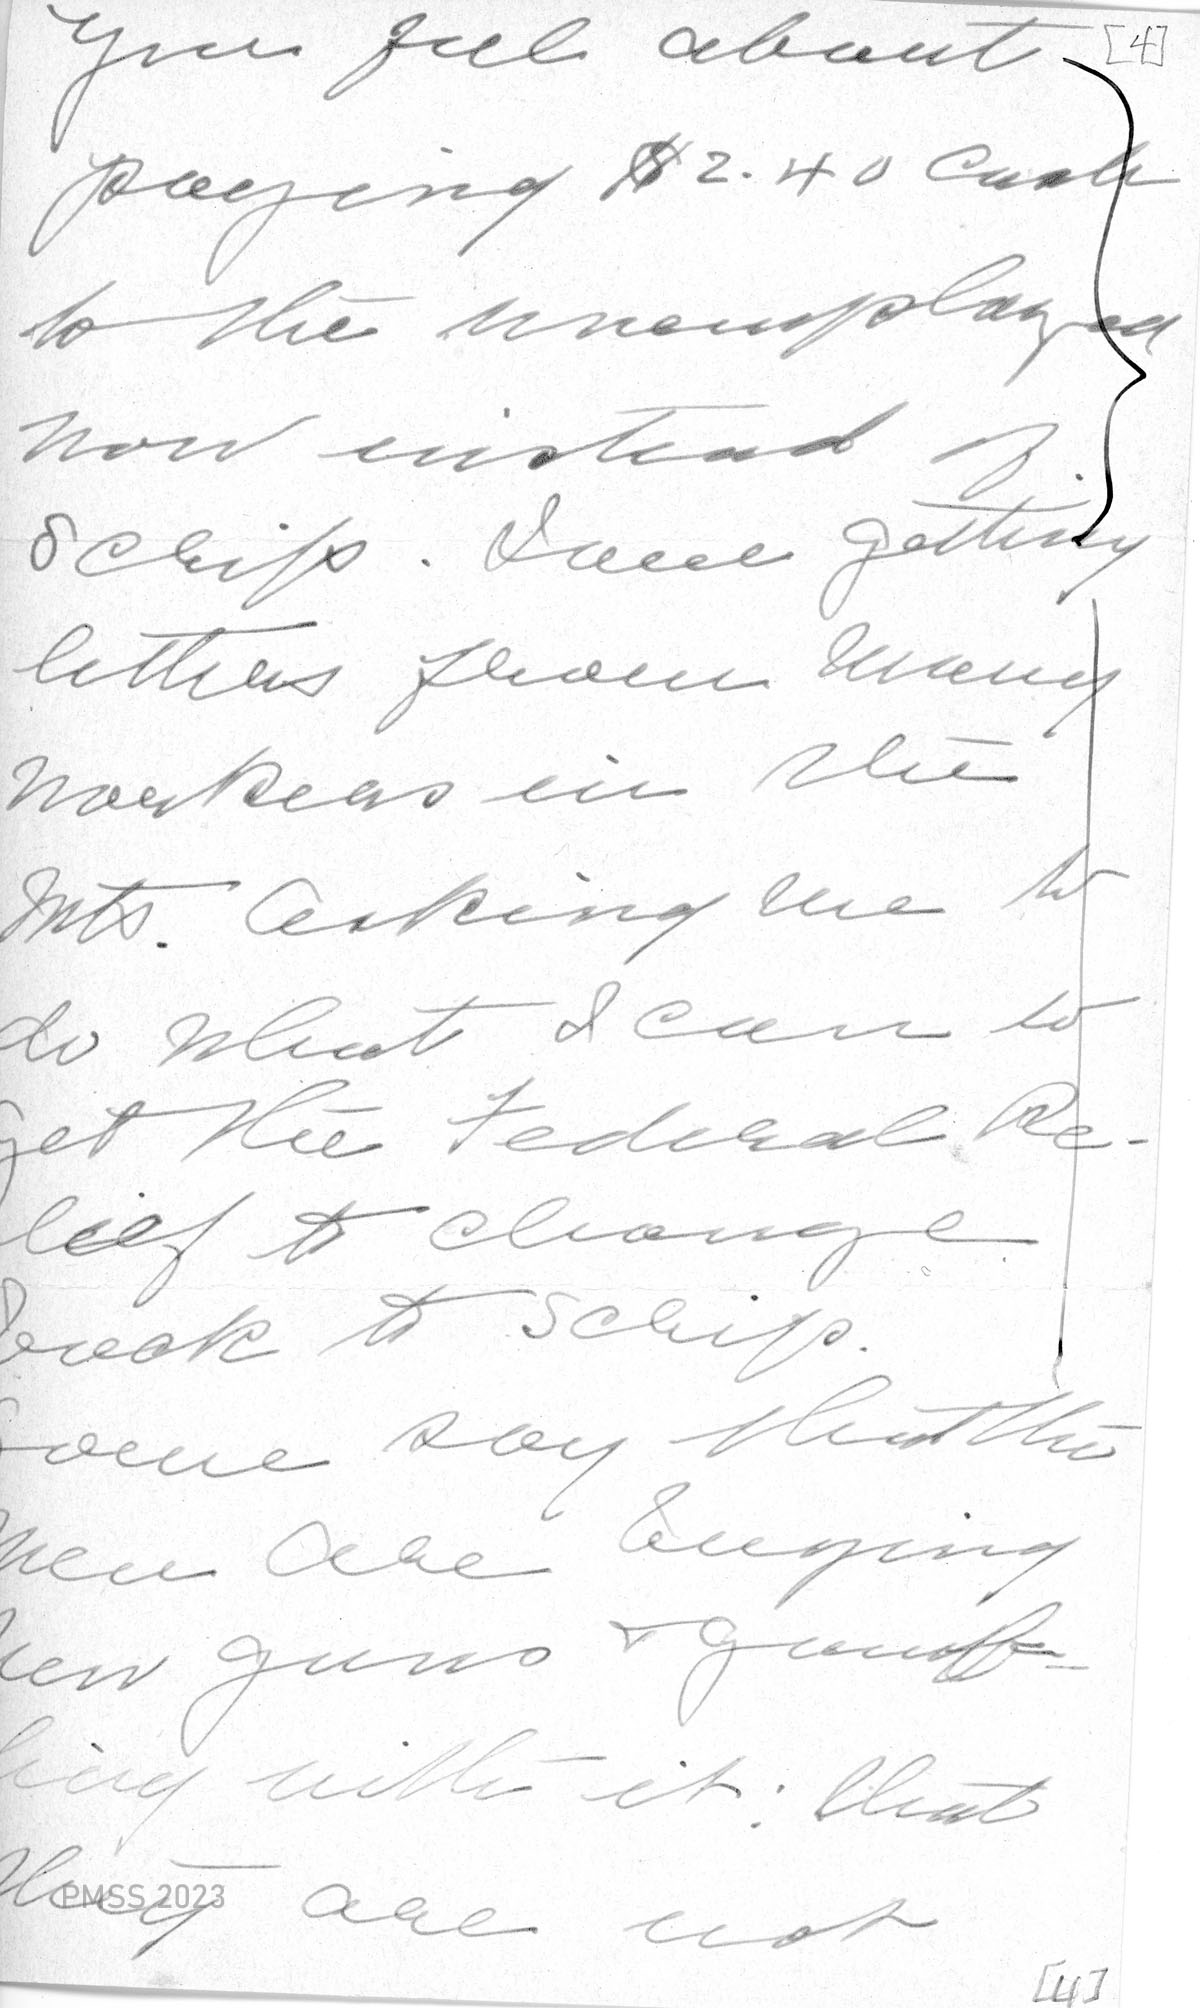 you feel about [4]
paying $2.40 cash
to the unemployed
now instead of
scrip. I am getting
letters from many
workers in the
Mts. asking me to
do what I can to
get the Federal Re-
lief to change
back to scrip.
Some say that the
men are buying
new guns & gamb-
ling with it: that
they are not
PMSS 2023
[4]